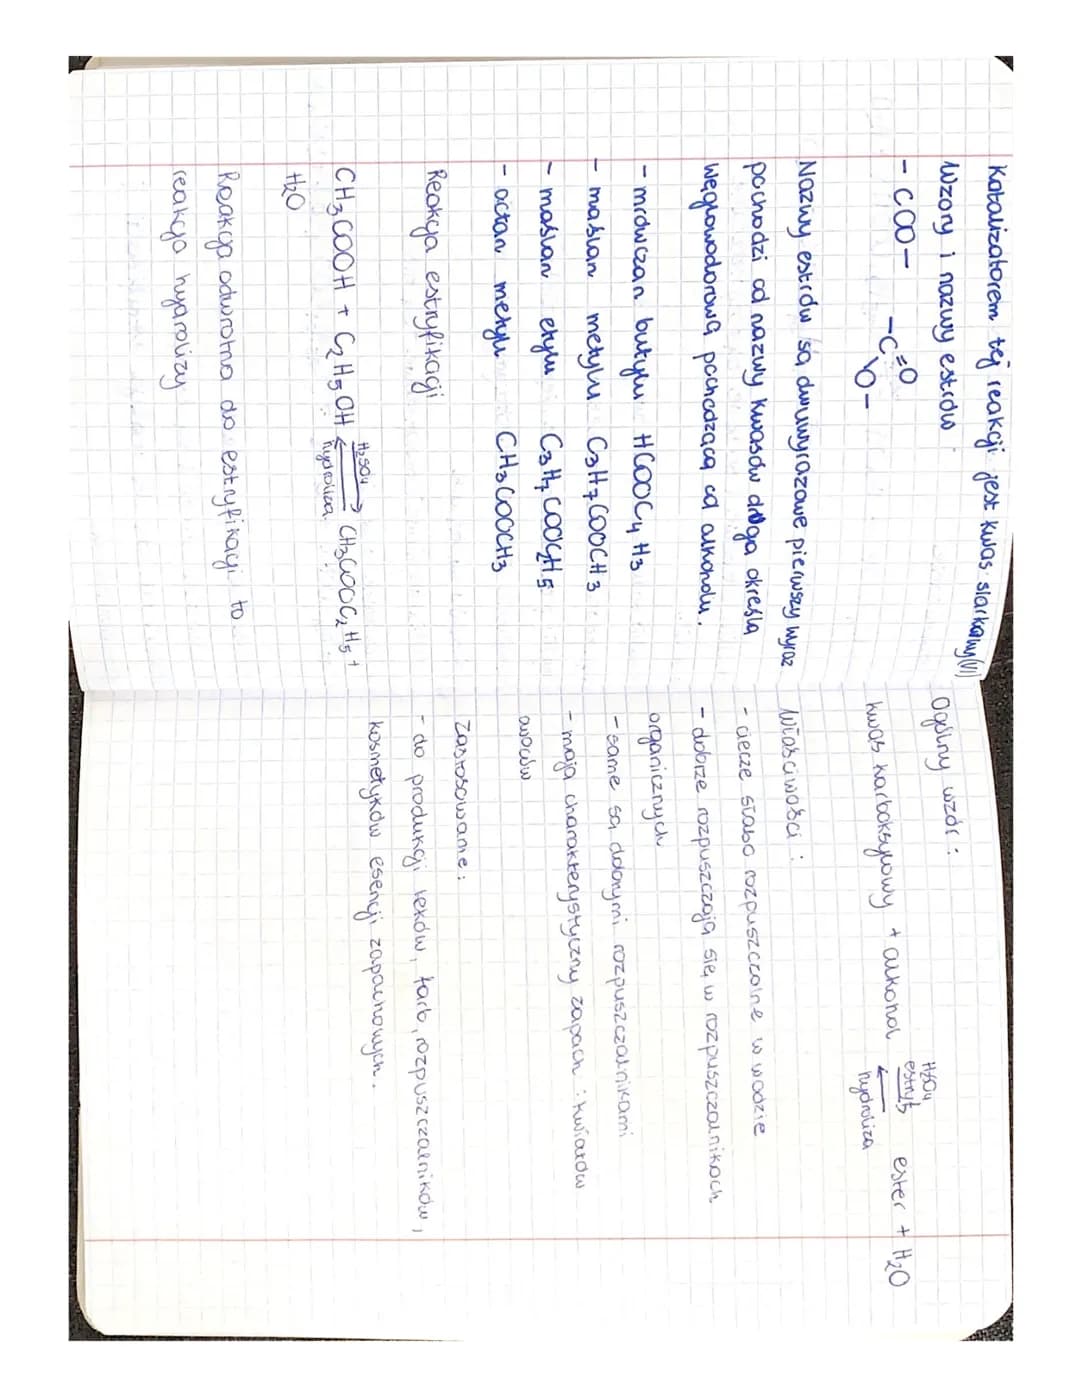 Katalizatorem tej reakcji jest kwas siarkowy(VI)
Wzory i nazwy estrów
- COO- -C=O
O-
Nazwy estrów są dwuwyrazowe pierwszy wyraz
pochodzi od nazwy kwasów druga określa
węglowodorową pochodzącą od alkoholu.
- mrówczan butylu HCOOC₄H₃
- maślan metylu C₃H₇COOCH₃
- maślan etylu C₃H₇COOC₂H₅
- octan metylu CH₃COOCH₃
Reakcja estryfikacji
H₂SO₄
CH₃COOH + C₂H₅OH ⇄ CH₃COOC₂H₅ +
hydroliza
H₂O
Reakcja odwrotna do estryfikacji to
reakcja hydrolizy
Ogólny wzór:
H₂SO₄
estryf.
kwas karboksylowy + alkohol ⇄ ester + H₂O
hydroliza
Właściwości:
- ciecze słabo rozpuszczalne w wodzie
- dobrze rozpuszczają się w rozpuszczalnikach
organicznych
- same są dobrymi rozpuszczalnikami
- mają charakterystyczny zapach: kwiatów
owoców
Zastosowanie:
- do produkcji leków, farb, rozpuszczalników,
kosmetyków esencji zapachowych.